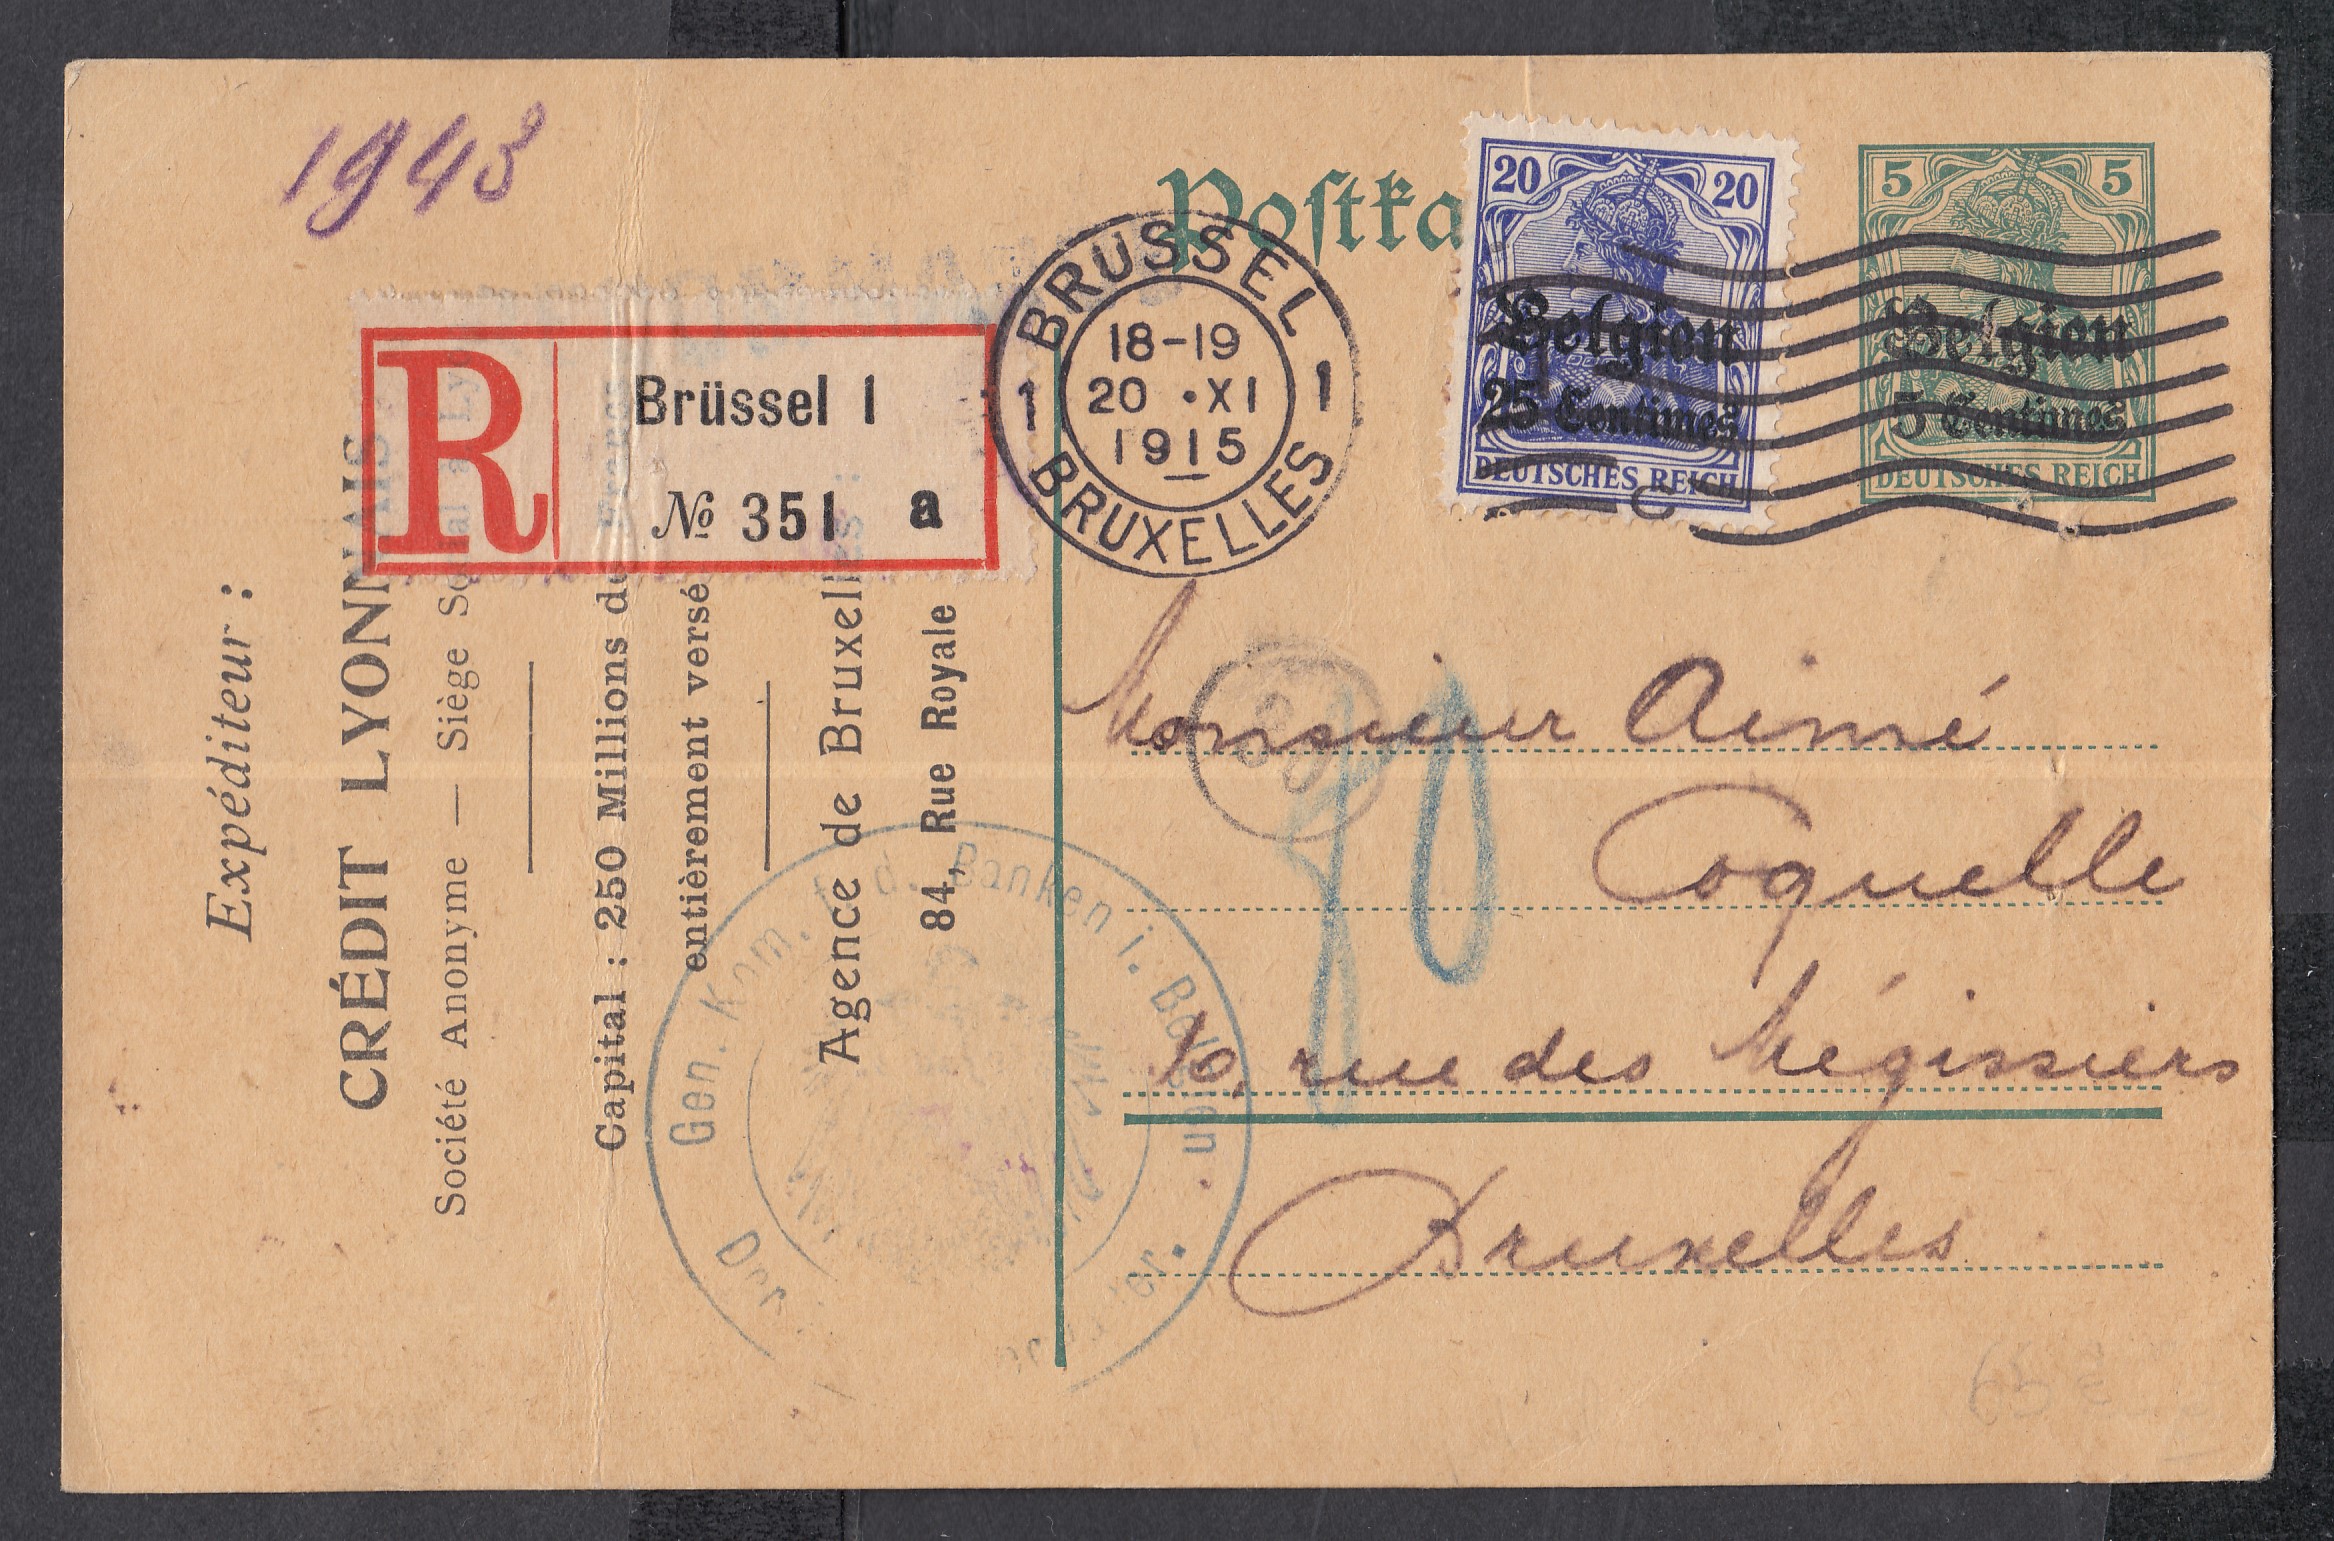 1943
Postka
R
Brüssel 1
№ 351 a
BRÜSSEL
18-19
20 • XI
1915
1 1
BRUXELLES
20 20
Belgien
25 Centimes
DEUTSCHES REICH
5 5
Belgien
5 Centimes
DEUTSCHES REICH
C
Expéditeur :
CRÉDIT LYONNAIS
Société Anonyme — Siège Social à Ly
Capital : 250 Millions de Francs
entièrement versé
Agence de Bruxelles :
84, Rue Royale
Monsieur Aimé
Coquelle
10, rue des Mégissiers
Bruxelles
Der Gen. Kom. f. d. Banken i. Belgien.